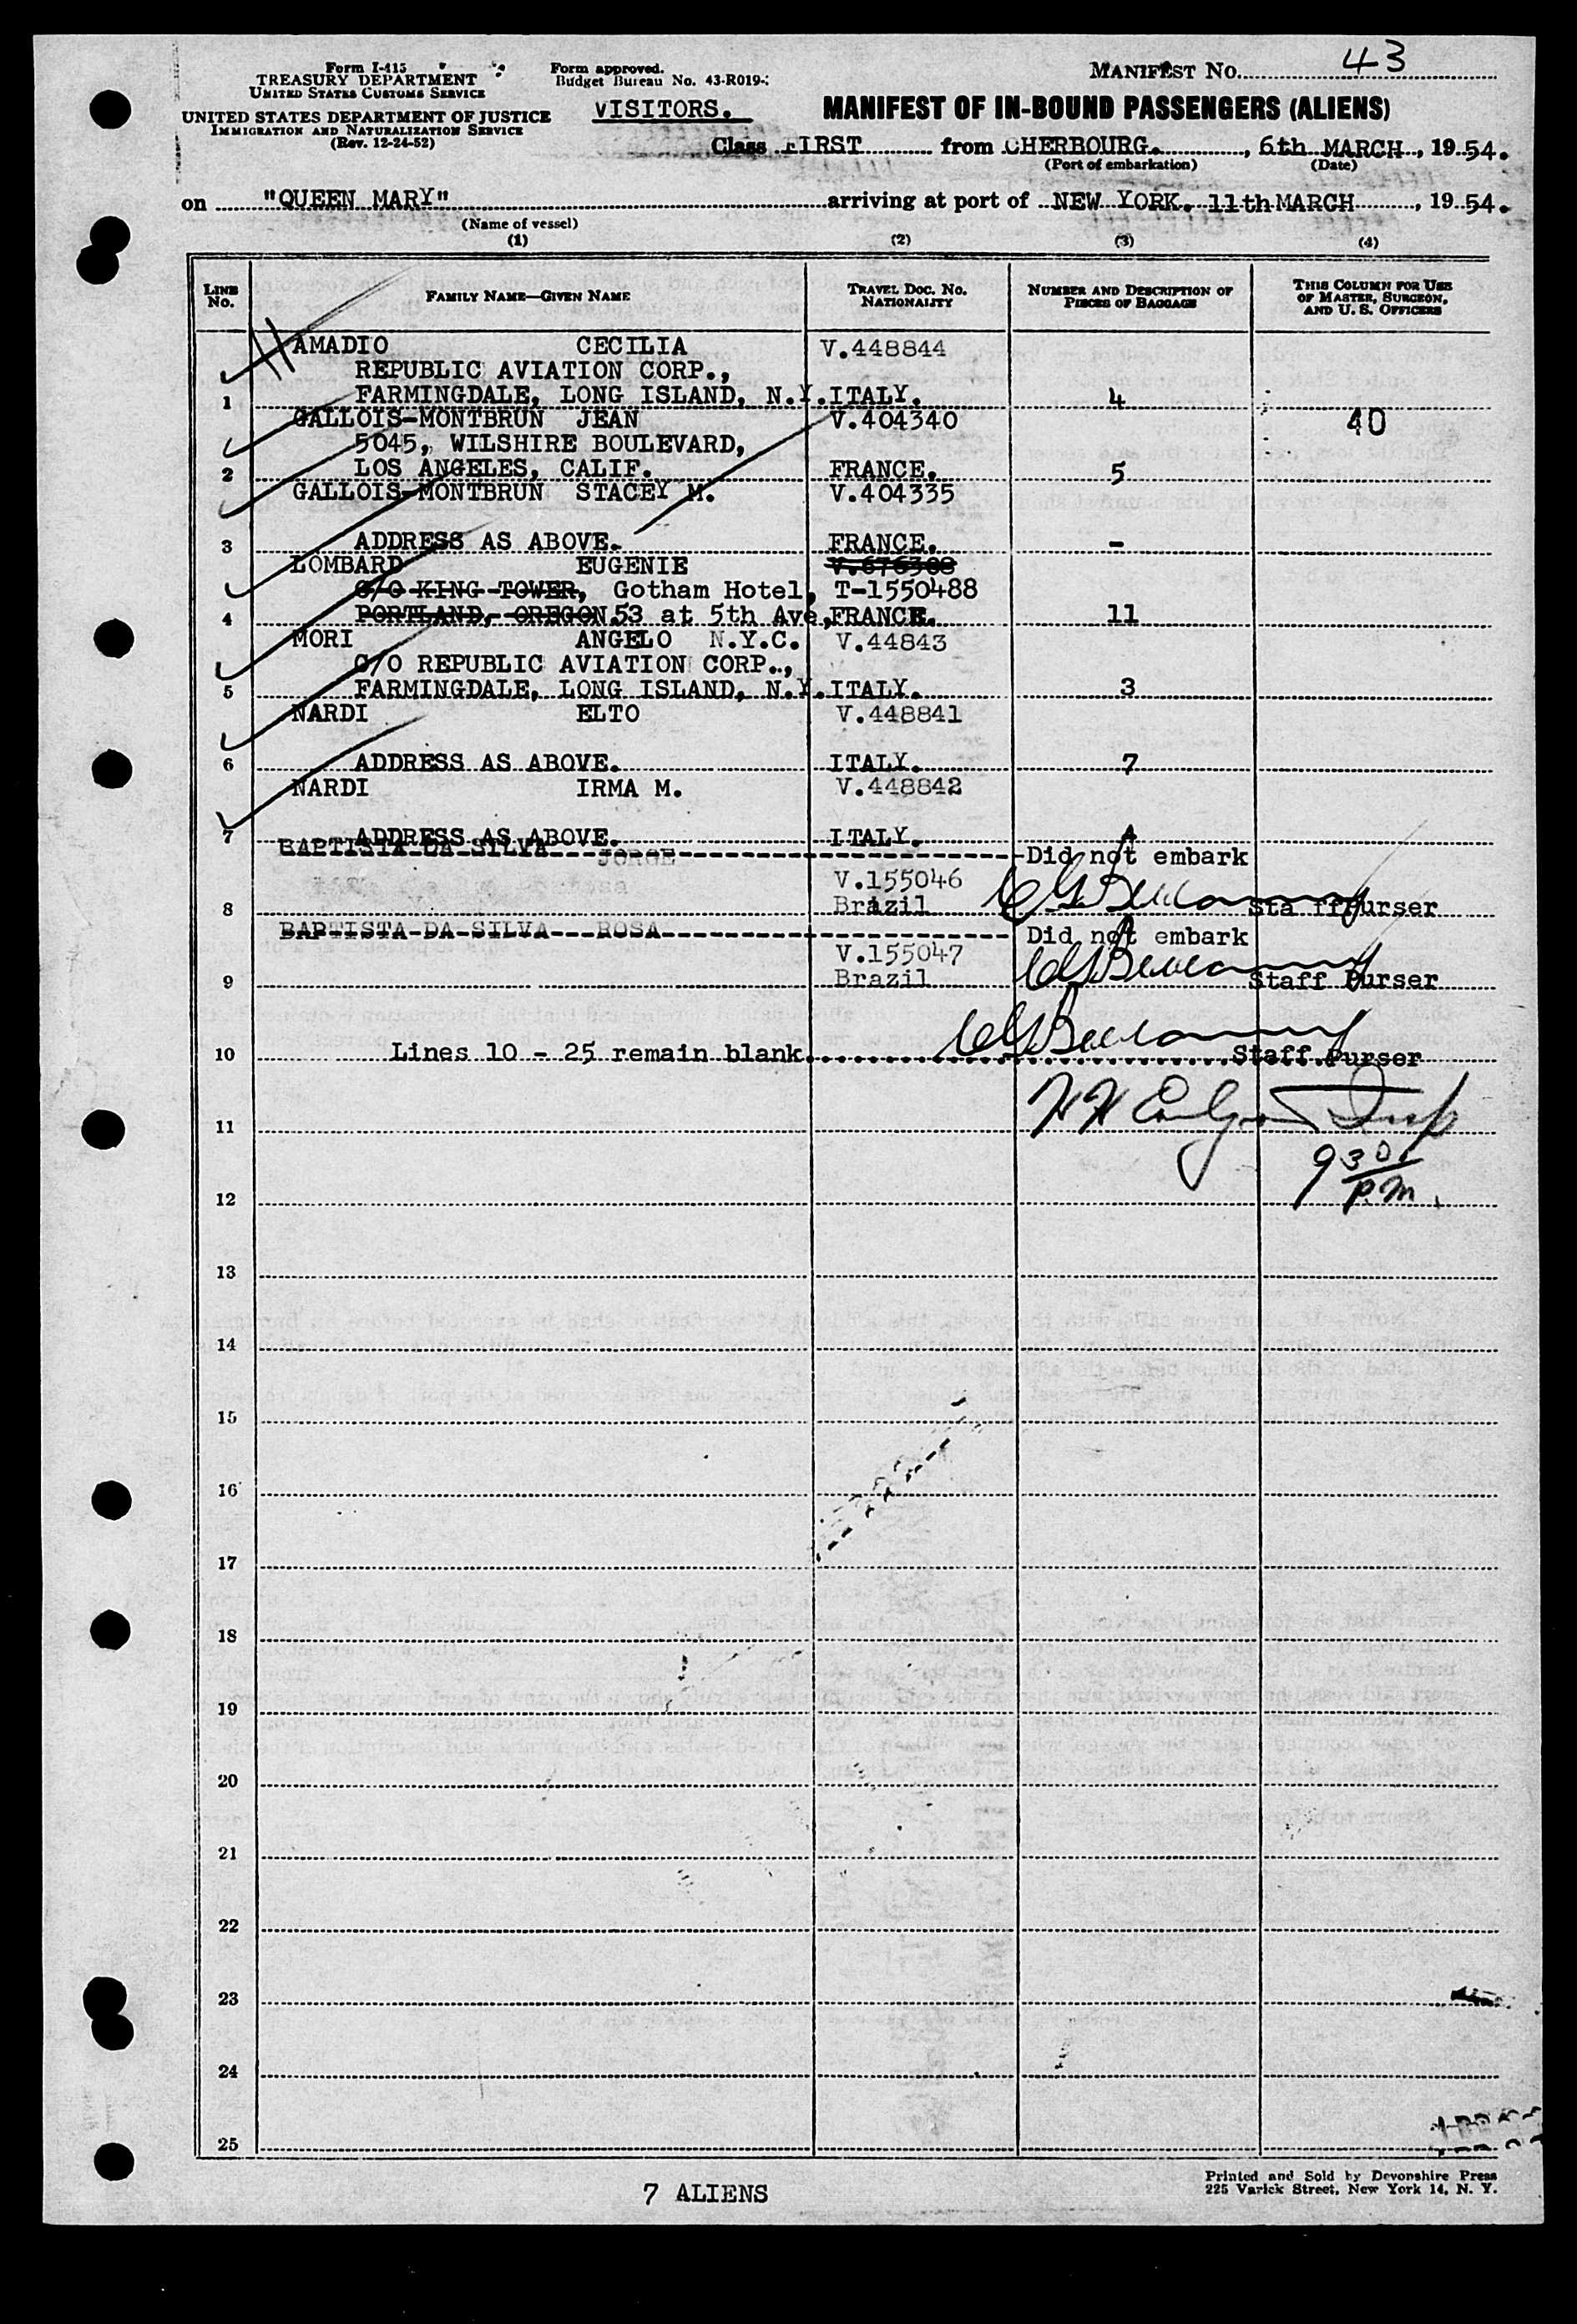 Form I-415
TREASURY DEPARTMENT
UNITED STATES CUSTOMS SERVICE
UNITED STATES DEPARTMENT OF JUSTICE
IMMIGRATION AND NATURALIZATION SERVICE
(Rev. 12-24-52)
Form approved.
Budget Bureau No. 43-R019-
VISITORS.
MANIFEST No. 43
MANIFEST OF IN-BOUND PASSENGERS (ALIENS)
Class FIRST from CHERBOURG. , 6th MARCH , 19 54.
(Port of embarkation) (Date)
on "QUEEN MARY" arriving at port of NEW YORK. 11th MARCH , 19 54.
(Name of vessel)
(1) (2) (3) (4)
LINE No. FAMILY NAME—GIVEN NAME TRAVEL DOC. No. NATIONALITY NUMBER AND DESCRIPTION OF PIECES OF BAGGAGE THIS COLUMN FOR USE OF MASTER, SURGEON, AND U. S. OFFICERS
AMADIO CECILIA V.448844
REPUBLIC AVIATION CORP.,
1 FARMINGDALE, LONG ISLAND, N.Y. ITALY. 4
GALLOIS-MONTBRUN JEAN V.404340 40
5045, WILSHIRE BOULEVARD,
2 LOS ANGELES, CALIF. FRANCE. 5
GALLOIS-MONTBRUN STACEY M. V.404335
3 ADDRESS AS ABOVE. FRANCE. -
LOMBARD EUGENIE
C/O KING TOWER, Gotham Hotel, T-1550488
4 PORTLAND, OREGON 53 at 5th Ave, FRANCE. 11
MORI ANGELO N.Y.C. V.44843
C/O REPUBLIC AVIATION CORP.,
5 FARMINGDALE, LONG ISLAND, N.Y. ITALY. 3
NARDI ELTO V.448841
6 ADDRESS AS ABOVE. ITALY. 7
NARDI IRMA M. V.448842
7 ADDRESS AS ABOVE. ITALY. 4
BAPTISTA-DA-SILVA JORGE Did not embark
V.155046
8 Brazil Staff Purser
BAPTISTA-DA-SILVA---ROSA Did not embark
V.155047
9 Brazil Staff Purser
10 Lines 10 - 25 remain blank Staff Purser
11
9 30 P.M.
12
13
14
15
16
17
18
19
20
21
22
23
24
25
7 ALIENS
Printed and Sold by Devonshire Press
225 Varick Street, New York 14, N. Y.